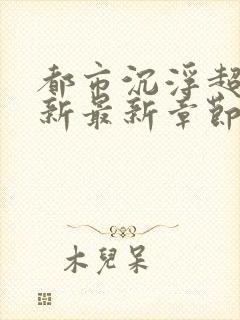 都市沉浮超
新最新章節
木兒呆